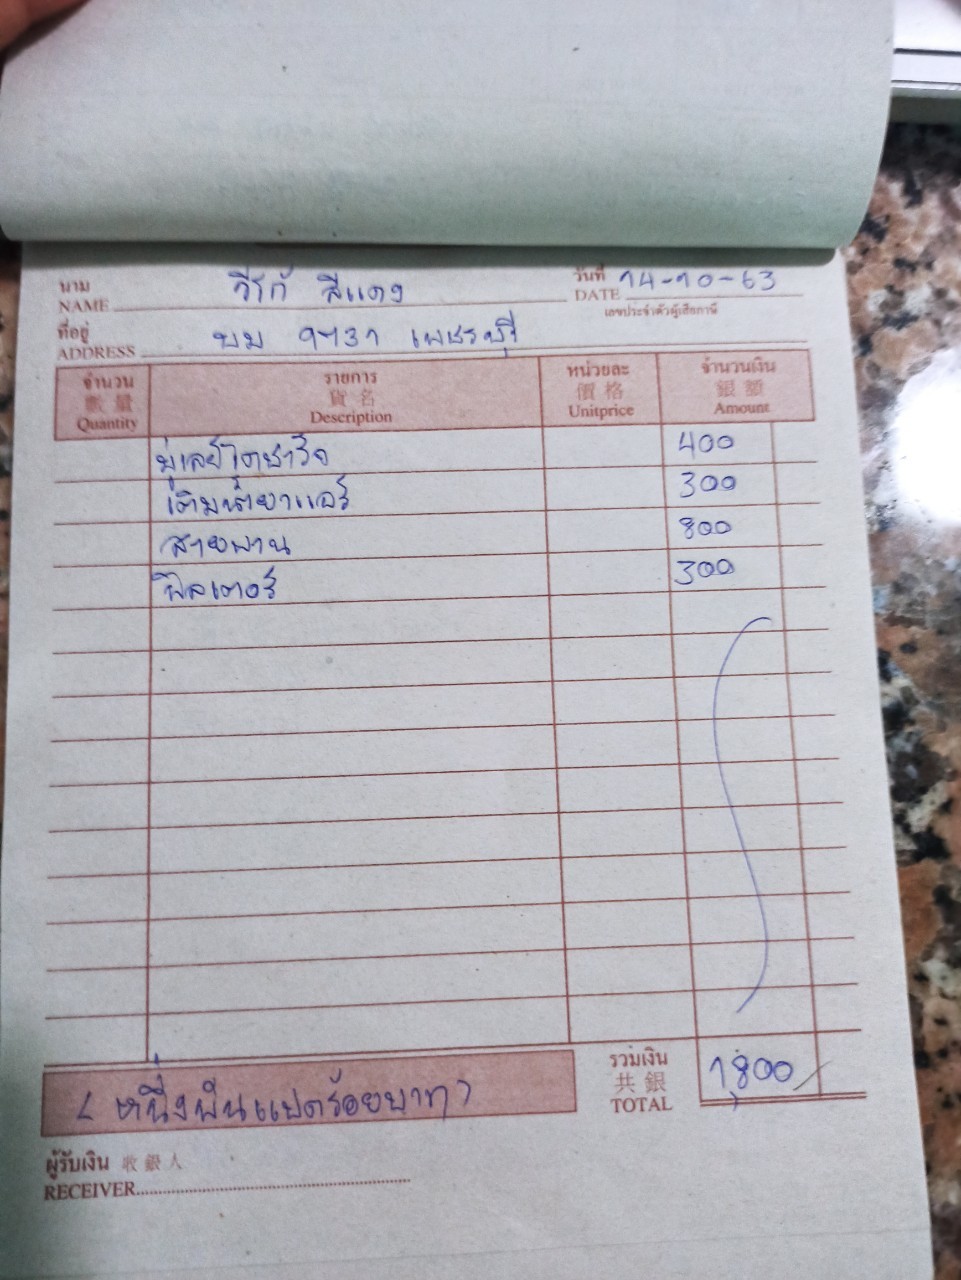 นาม วีโก้ สีแดง วันที่ 14-10-63
NAME DATE
เลขประจำตัวผู้เสียภาษี
ที่อยู่ บม 9731 เพชรบุรี
ADDRESS
จำนวน รายการ หน่วยละ จำนวนเงิน
數量 貨名 價格 銀額
Quantity Description Unitprice Amount
มู่เลย์ไดชาร์จ 400
เติมน้ำยาแอร์ 300
สายพาน 800
ฟิลเตอร์ 300
รวมเงิน
共銀 1800
TOTAL
( หนึ่งพันแปดร้อยบาท )
ผู้รับเงิน 收銀人
RECEIVER